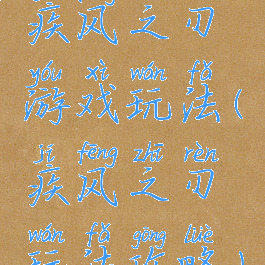 疾风之刃
yóu xì wán fǎ
游戏玩法(
jí fēng zhī rèn
疾风之刃
wán fǎ gōng lüè
玩法攻略)